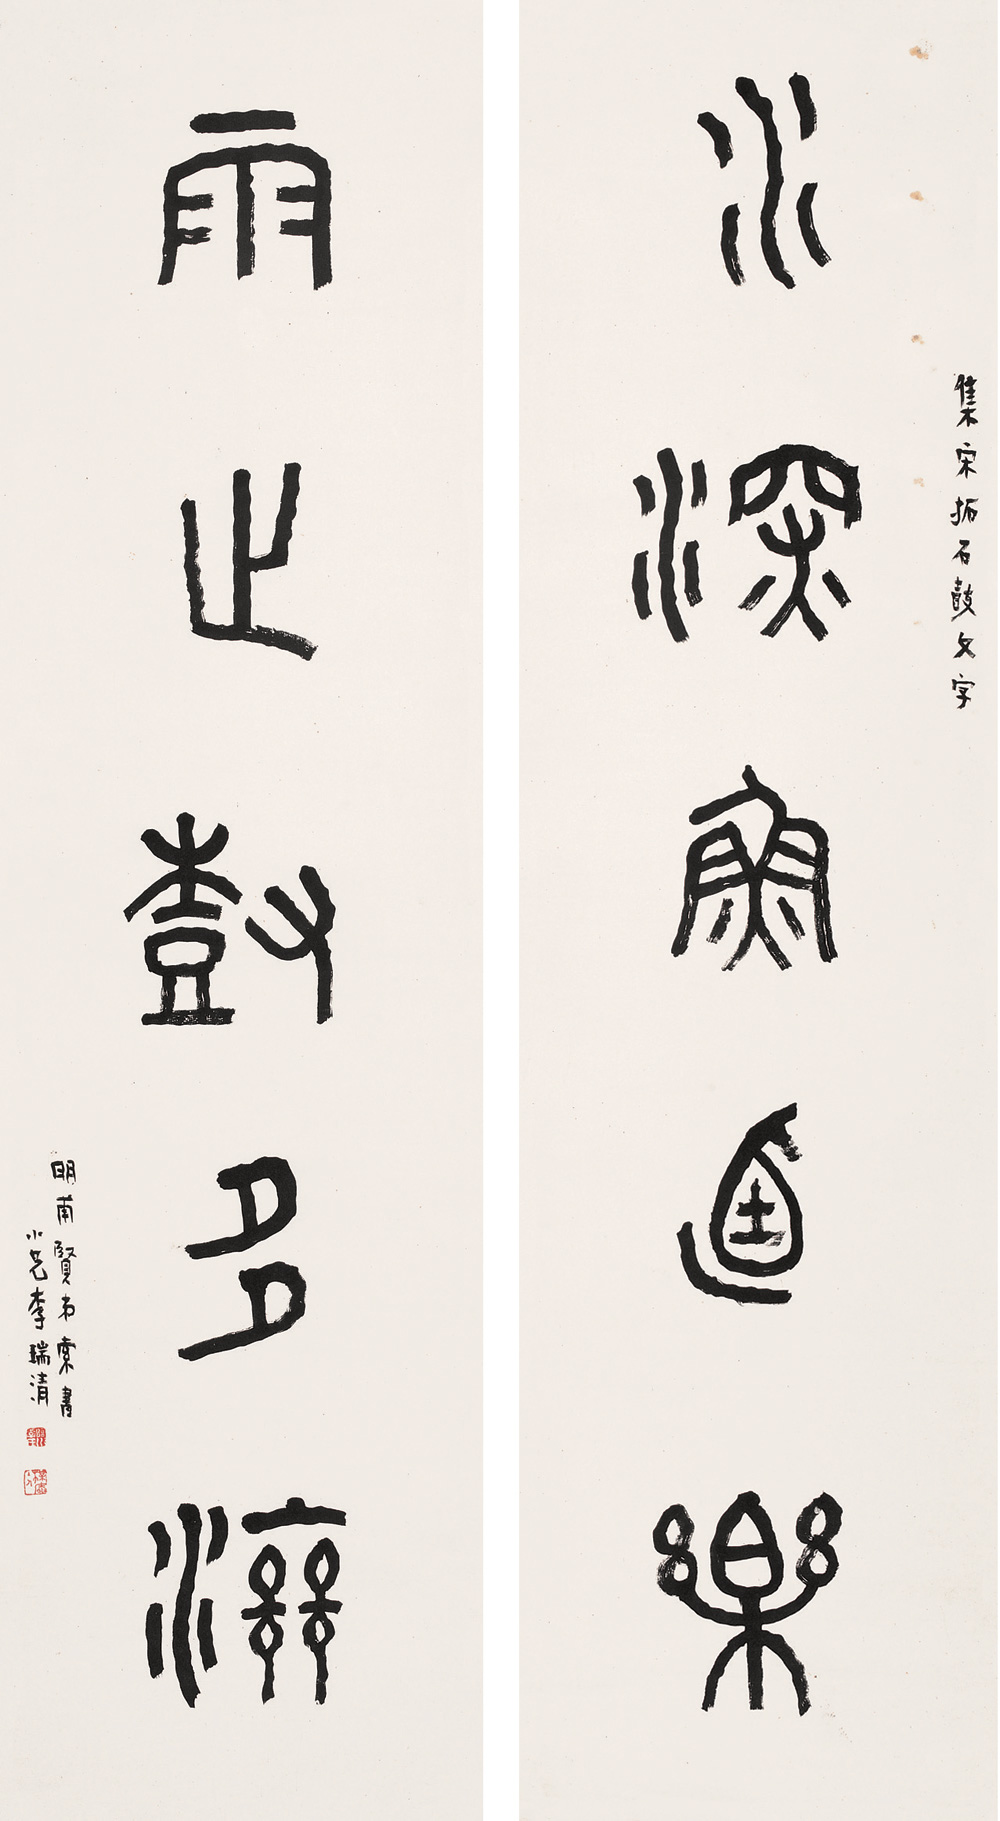 集宋拓石鼓文字
水深魚逌樂
雨止樹多滋
明甫賢弟索書
小兄李瑞清